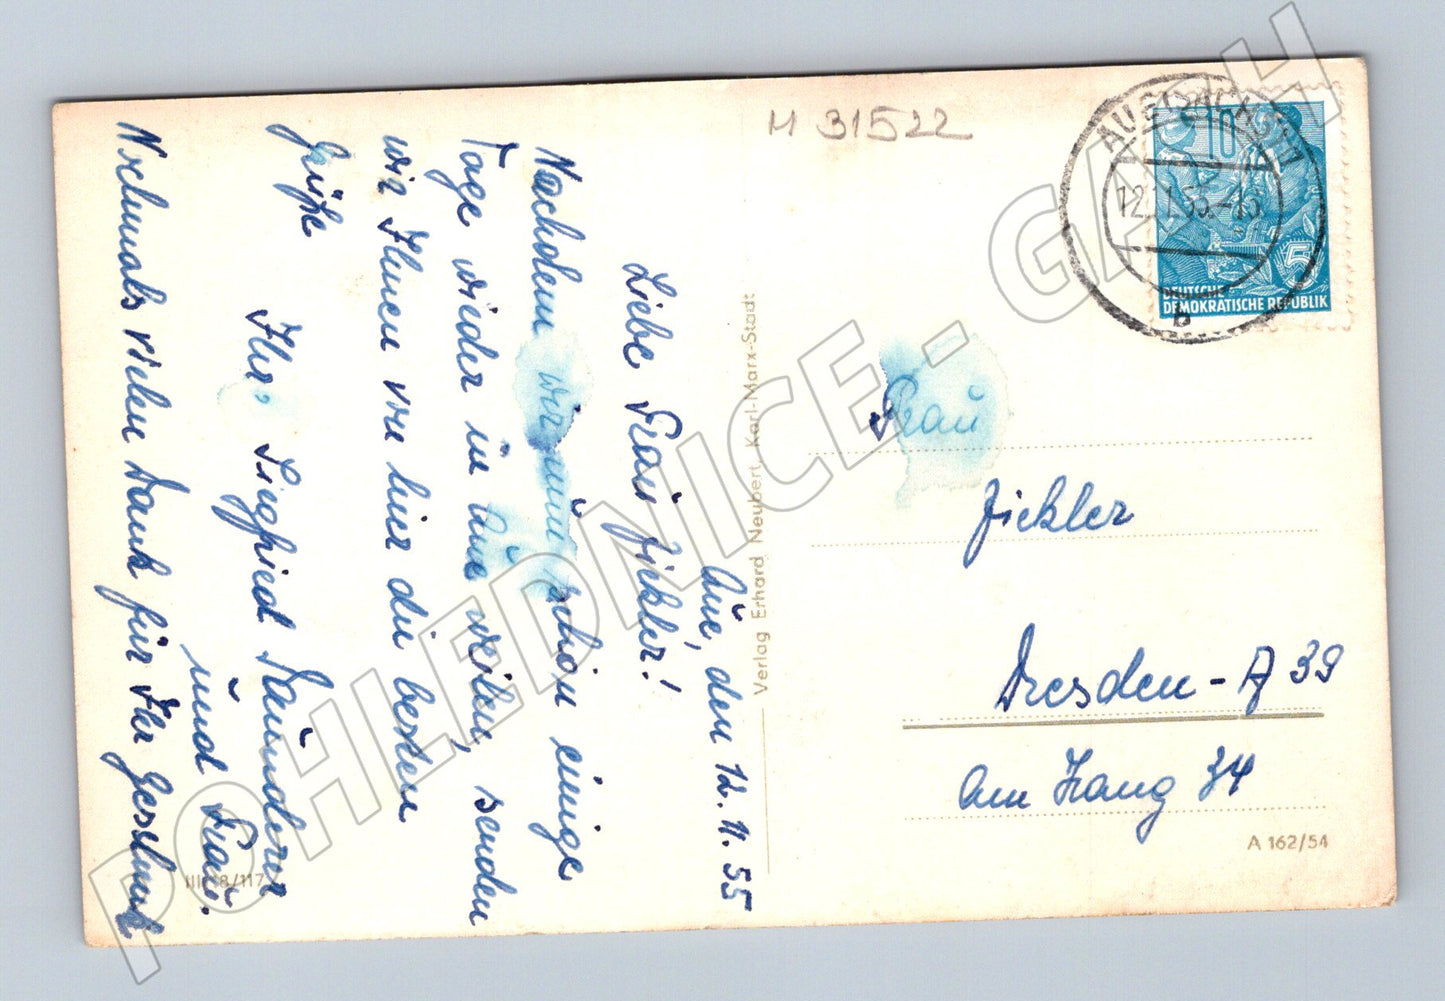 M 31522
Aue, den 12.11.55
Liebe Frau Zickler!
Nachdem wir nun schon einige
Tage wieder in Aue weilen, senden
wir Ihnen von hier die besten
Grüße
Ihr Siegfried
und Frau.
Nochmals vielen Dank für Ihr Geschenk
III/18/117
Verlag Erhard Neubert, Karl-Marx-Stadt
AUE (SACHSEN)
12.11.55.-16
b
10
5
DEUTSCHE
DEMOKRATISCHE REPUBLIK
Frau
Zickler
Dresden-A 39
Am Hang 34
A 162/54
POHLEDNICE - GALCH